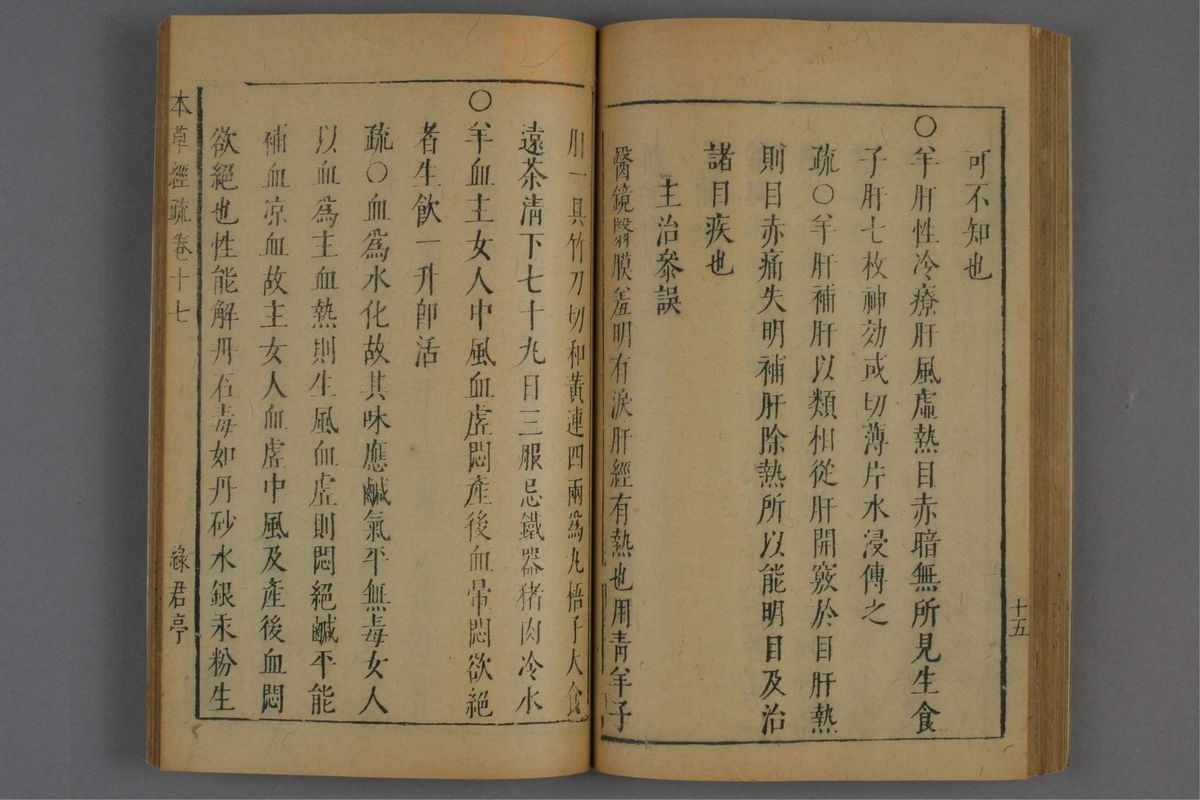 可不知也
〇羊肝性冷療肝風虛熱目赤暗無所見生食
子肝七枚神効或切薄片水浸傅之
疏〇羊肝補肝以類相從肝開竅於目肝熱
則目赤痛失明補肝除熱所以能明目及治
諸目疾也
主治叅誤
醫鏡翳膜羞明有淚肝經有熱也用青羊子
十五
肝一具竹刀切和黃連四兩為丸梧子大食
遠茶清下七十丸日三服忌鐵器猪肉冷水
〇羊血主女人中風血虛悶產後血暈悶欲絕
者生飲一升卽活
疏〇血為水化故其味應鹹氣平無毒女人
以血為主血熱則生風血虛則悶絕鹹平能
補血凉血故主女人血虛中風及產後血悶
欲絕也性能解丹石毒如丹砂水銀汞粉生
本草經疏卷十七
綠君亭